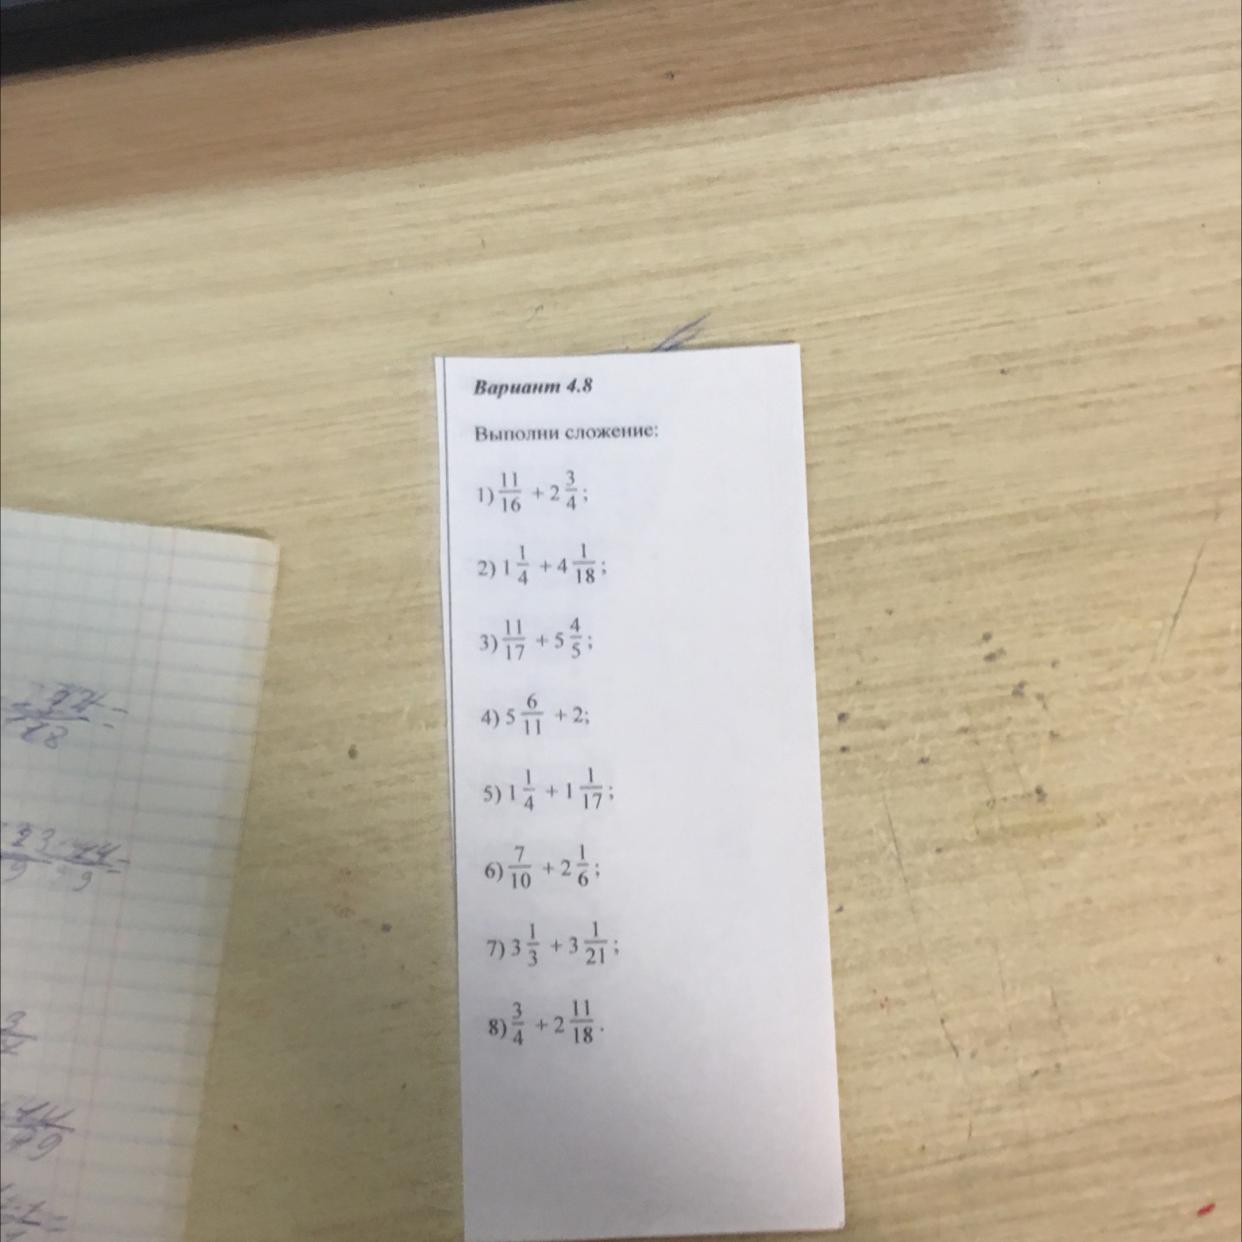 Вариант 4.8
Выполни сложение:
1) 11/16 + 2 3/4;
2) 1 1/4 + 4 1/18;
3) 11/17 + 5 4/5;
4) 5 6/11 + 2;
5) 1 1/4 + 1 1/17;
6) 7/10 + 2 1/6;
7) 3 1/3 + 3 1/21;
8) 3/4 + 2 11/18.